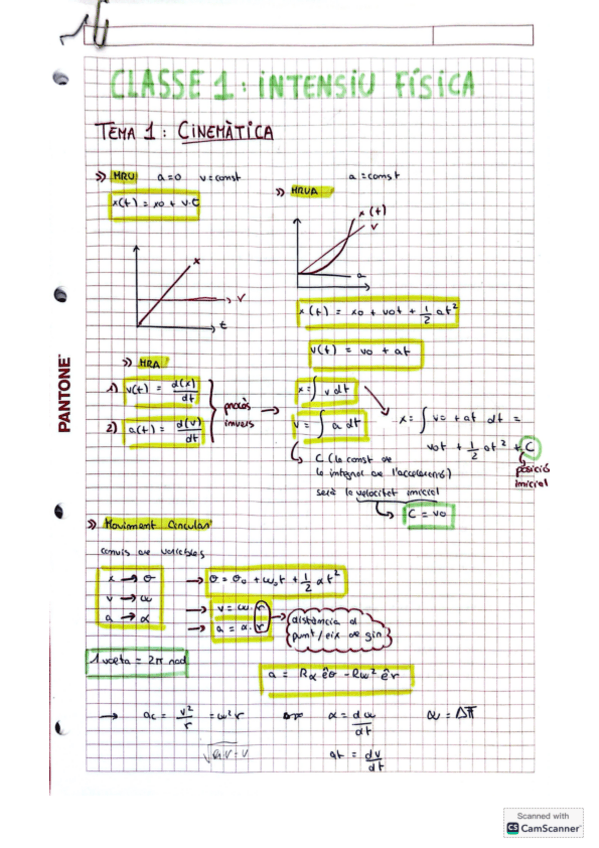 CLASSE 1: INTENSIU FÍSICA
TEMA 1: CINEMÀTICA
>> MRU a=0 v=const
x(t) = x0 + v·t
a = const
>> MRUA
x(t)
v
a
x
v
t
x(t) = x0 + v0t + 1/2 at²
v(t) = v0 + at
>> MRA
1) v(t) = d(x)/dt
2) a(t) = d(v)/dt
procès invers
x = ∫ v dt
v = ∫ a dt
x = ∫ v0 + at dt =
v0t + 1/2 at² + C
posició
inicial
C (la const de
la integral de l'acceleració)
serà la velocitat inicial
C = v0
>> Moviment Circular
canvis de variables
x → θ
v → ω
a → α
→ θ = θ0 + ω0t + 1/2 αt²
→ v = ω·r
→ a = α·r
distància al
punt/eix de gir
1 volta = 2π rad
a = Rα êθ - Rω² êr
→ ac = v²/r = ω²r
α = dω/dt
at = dv/dt
PANTONE
Scanned with
CS CamScanner